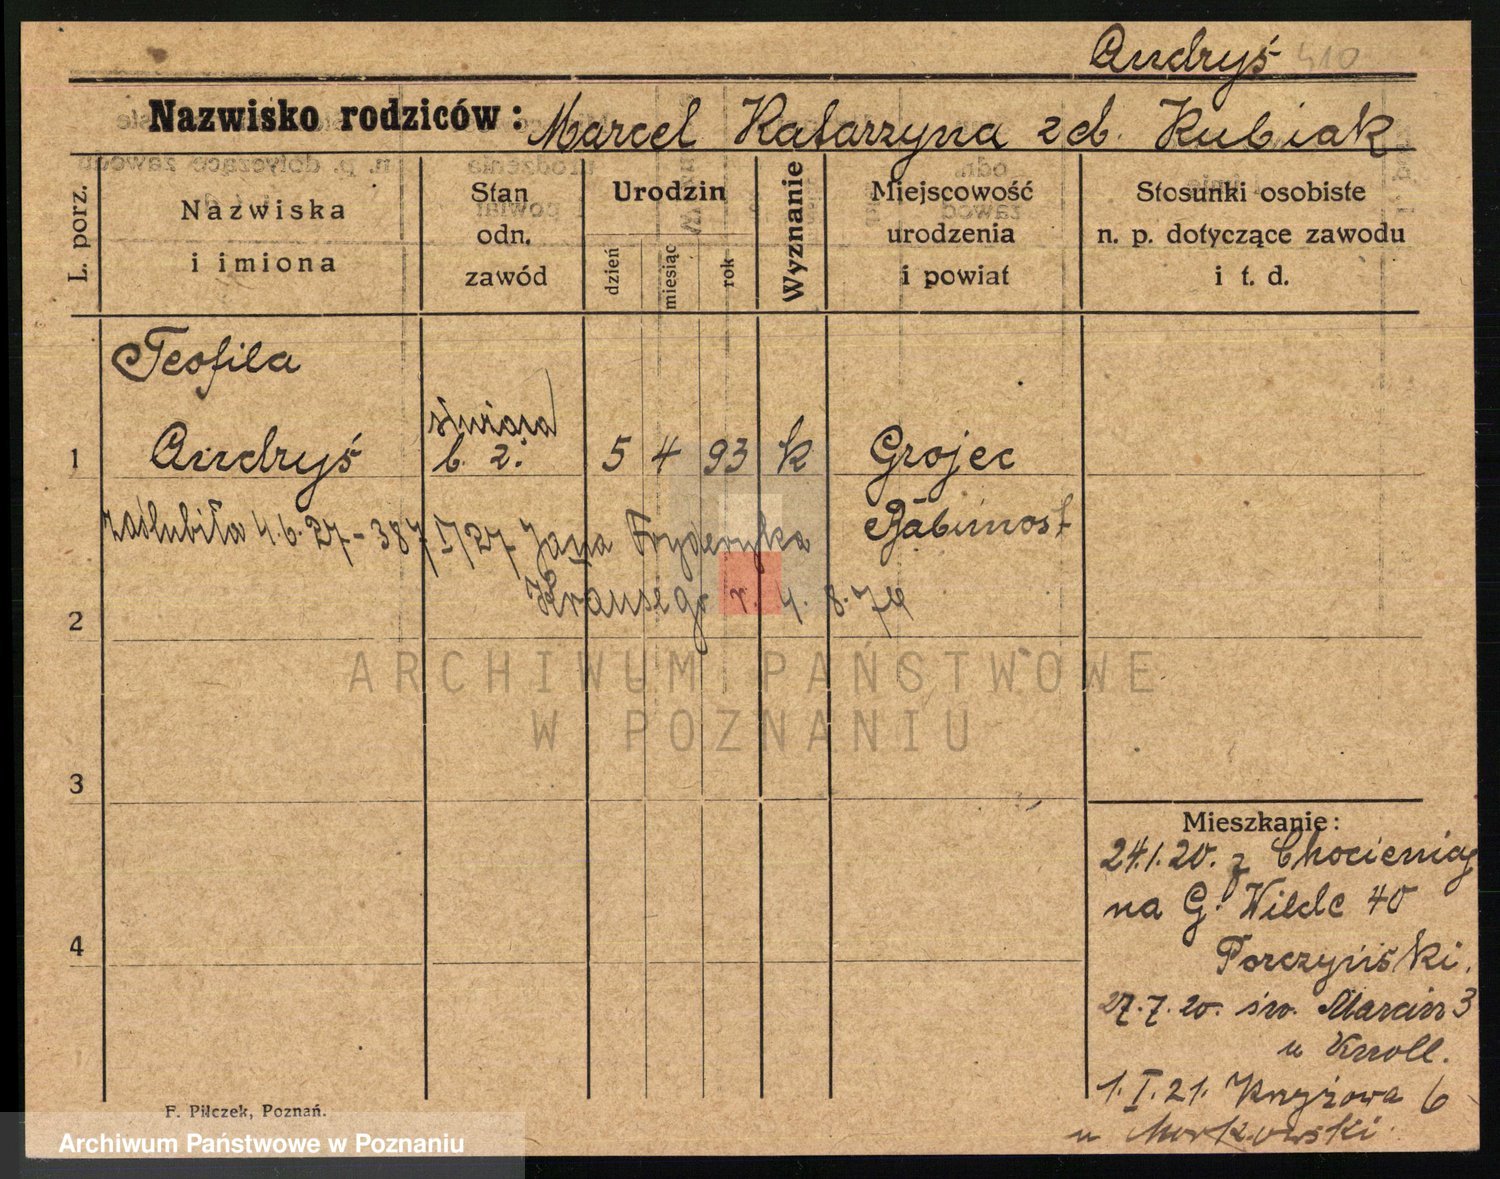 Andryś 410
Nazwisko rodziców: Marcel Katarzyna zd. Kubiak
L. porz.
Nazwiska
i imiona
Stan
odn.
zawód
Urodzin
dzień
miesiąc
rok
Wyznanie
Miejscowość
urodzenia
i powiat
Stosunki osobiste
n. p. dotyczące zawodu
i t. d.
Teofila
1 Andryś b. z. 5 4 93 k Grojec
Babimost
zaślubiła 4.6.27 - 387/I/27 Jana Fryderyka
2 Krausego r. 4.8.74
ARCHIWUM PAŃSTWOWE
W POZNANIU
3
Mieszkanie:
24.1.20. z
na G. Wilde 40
4 Porczyński.
27.7.20. św. Marcin 3
u Knoll.
1.I.21. Knyżowa 6
u
F. Piłczek, Poznań.
Archiwum Państwowe w Poznaniu